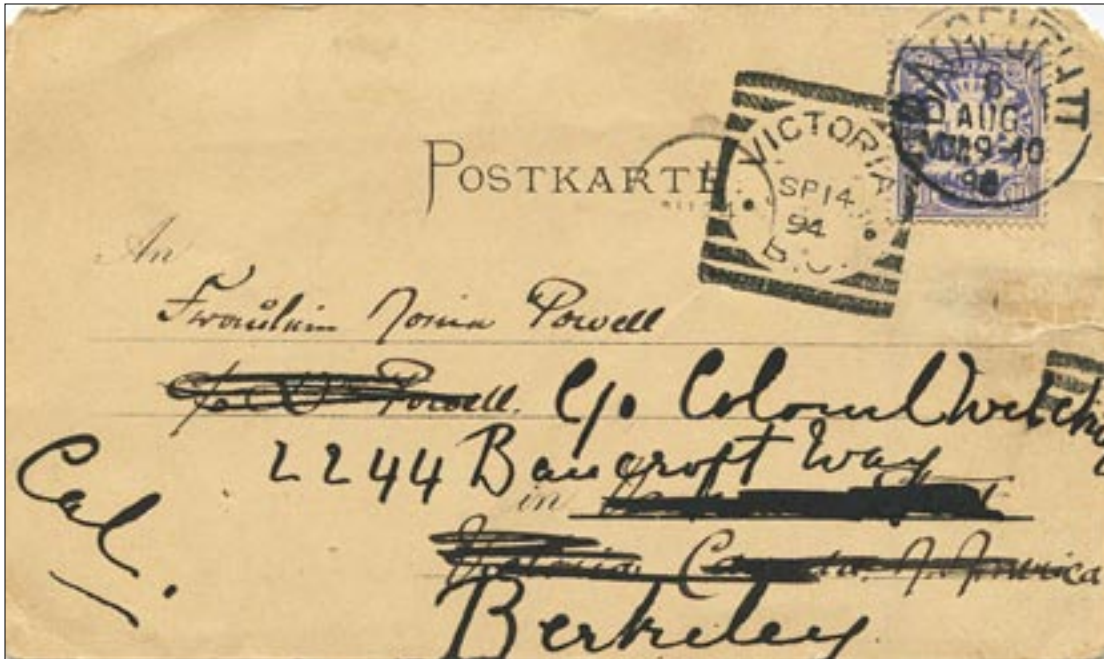 POSTKARTE
VICTORIA
SP 14
94
B.C.
6
AUG
VM 9-10
94
An
Fräulein Powell
Powell. C/o Colonel
2244 Bancroft Way
in
Cal.
Victoria Canada N. America
Berkeley